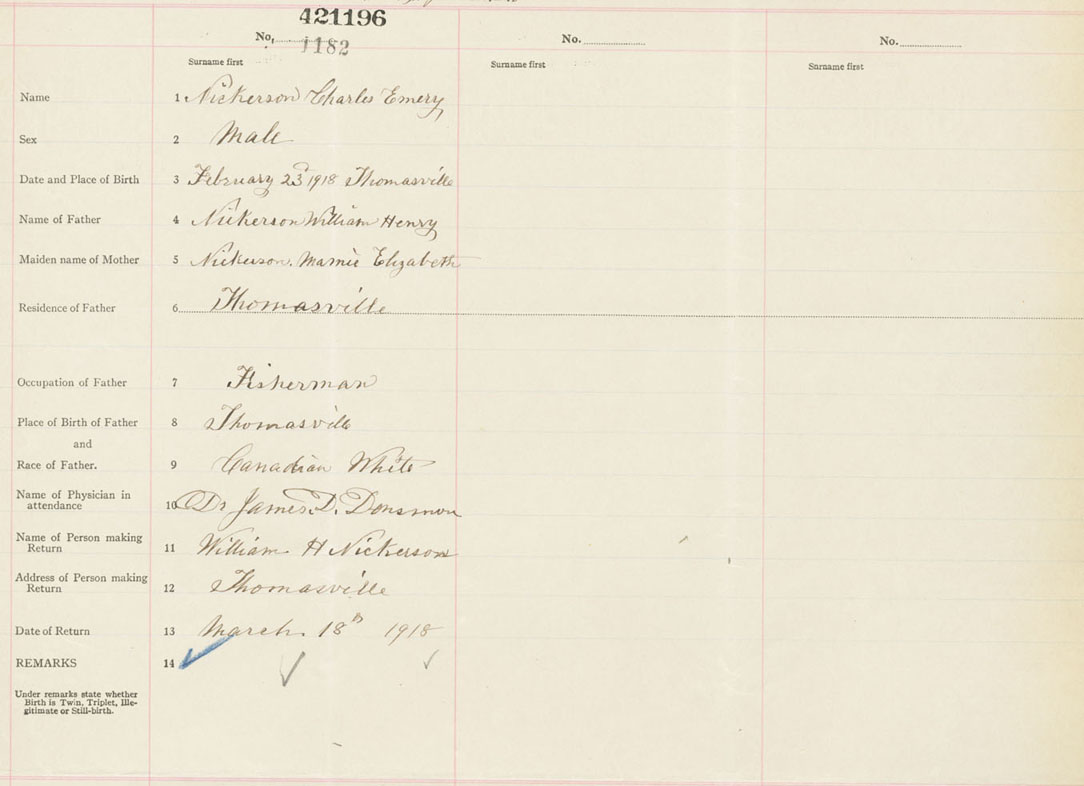 421196
No. 1182 No. No.
Surname first Surname first Surname first
Name 1 Nickerson Charles Emery
Sex 2 Male
Date and Place of Birth 3 February 23 1918 Thomasville
Name of Father 4 Nickerson William Henry
Maiden name of Mother 5 Nickerson. Mamie Elizabeth
Residence of Father 6 Thomasville
Occupation of Father 7 Fisherman
Place of Birth of Father 8 Thomasville
and
Race of Father. 9 Canadian White
Name of Physician in
attendance 10 Dr James D.
Name of Person making
Return 11 William H Nickerson
Address of Person making
Return 12 Thomasville
Date of Return 13 March. 18th 1918
REMARKS 14
Under remarks state whether
Birth is Twin, Triplet, Ille-
gitimate or Still-birth.